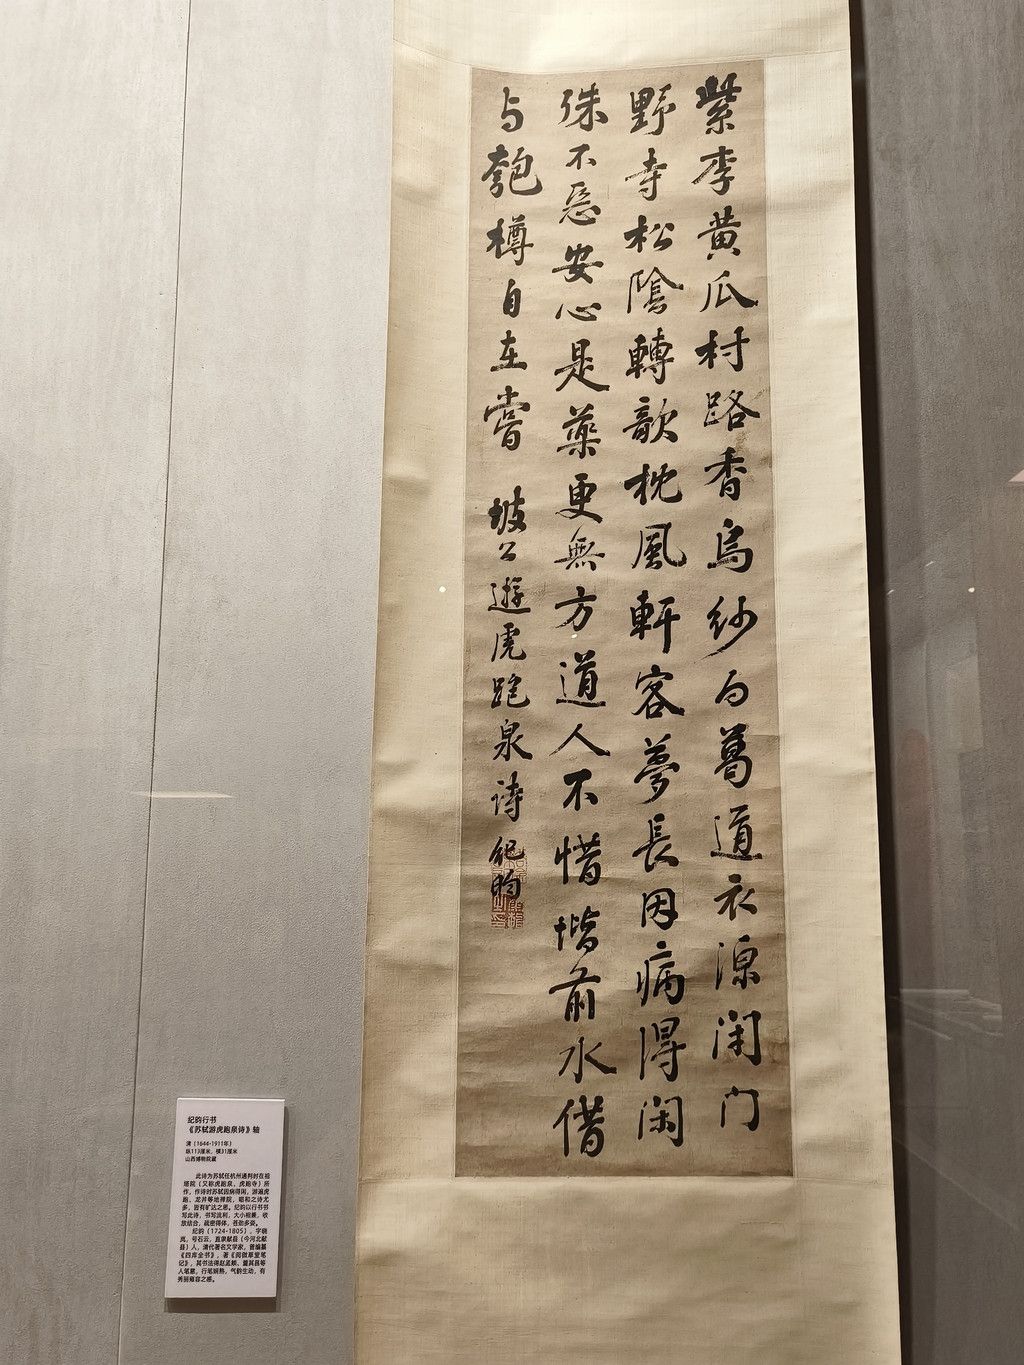 紫李黄瓜村路香烏紗白葛道衣凉閉门
野寺松陰轉欹枕風軒客夢長因病得闲
殊不惡安心是藥更無方道人不惜堦前水借
与匏樽自在嘗 坡公遊虎跑泉诗 紀昀
纪昀行书
《苏轼游虎跑泉诗》轴
清（1644-1911年）
纵113厘米，横31厘米
山西博物院藏
此诗为苏轼任杭州通判时在祖
塔院（又称虎跑泉、虎跑寺）所
作，作诗时苏轼因病得闲，游遍虎
跑、龙井等地禅院，唱和之诗尤
多，皆有旷达之意。纪昀以行书书
写此诗，书写流利，大小相兼，收
放结合，疏密得体，苍劲多姿。
纪昀（1724-1805），字晓
岚，号石云，直隶献县（今河北献
县）人，清代著名文学家，曾编纂
《四库全书》，著《阅微草堂笔
记》，其书法得赵孟頫、董其昌等
人笔意，行笔娴熟，气韵生动，有
秀丽雍容之感。